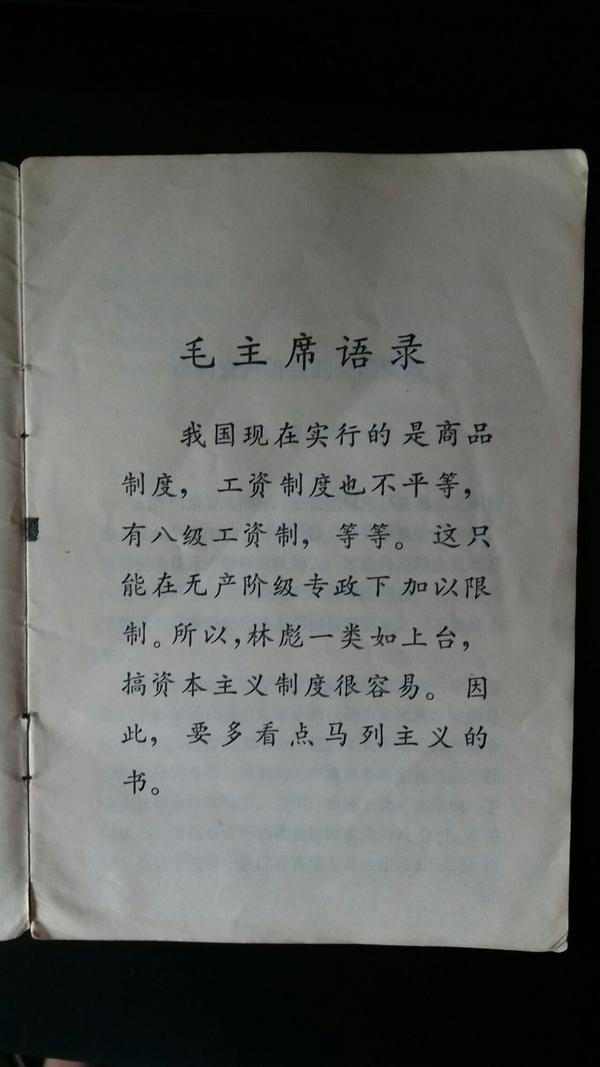 毛主席语录
我国现在实行的是商品
制度，工资制度也不平等，
有八级工资制，等等。这只
能在无产阶级专政下加以限
制。所以，林彪一类如上台，
搞资本主义制度很容易。因
此，要多看点马列主义的
书。